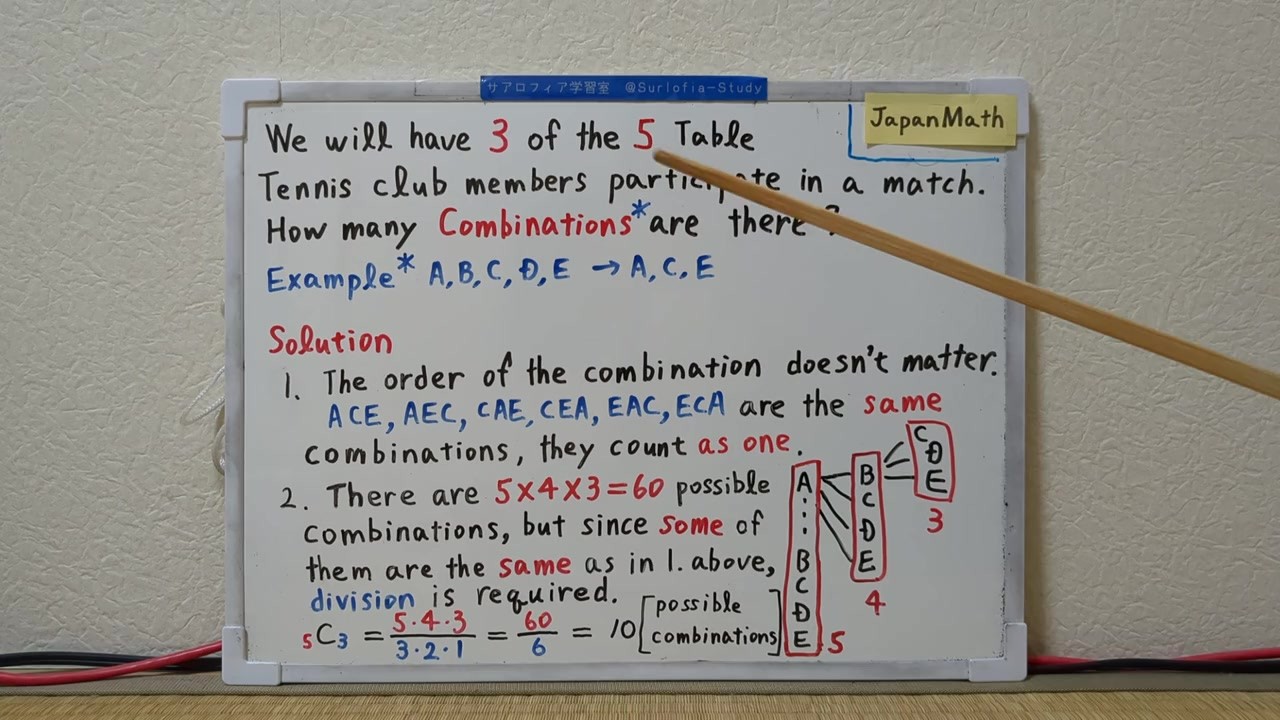 サアロフィア学習室 @Surlofia-Study
JapanMath
We will have 3 of the 5 Table
Tennis club members participate in a match.
How many Combinations* are there?
Example* A, B, C, D, E → A, C, E
Solution
1. The order of the combination doesn't matter.
ACE, AEC, CAE, CEA, EAC, ECA are the same
combinations, they count as one.
2. There are 5×4×3=60 possible
combinations, but since some of
them are the same as in 1. above,
division is required.
5C3 = 5·4·3/3·2·1 = 60/6 = 10 [possible combinations]
A
⋮
B
C
D
E
5
B
C
D
E
4
C
D
E
3